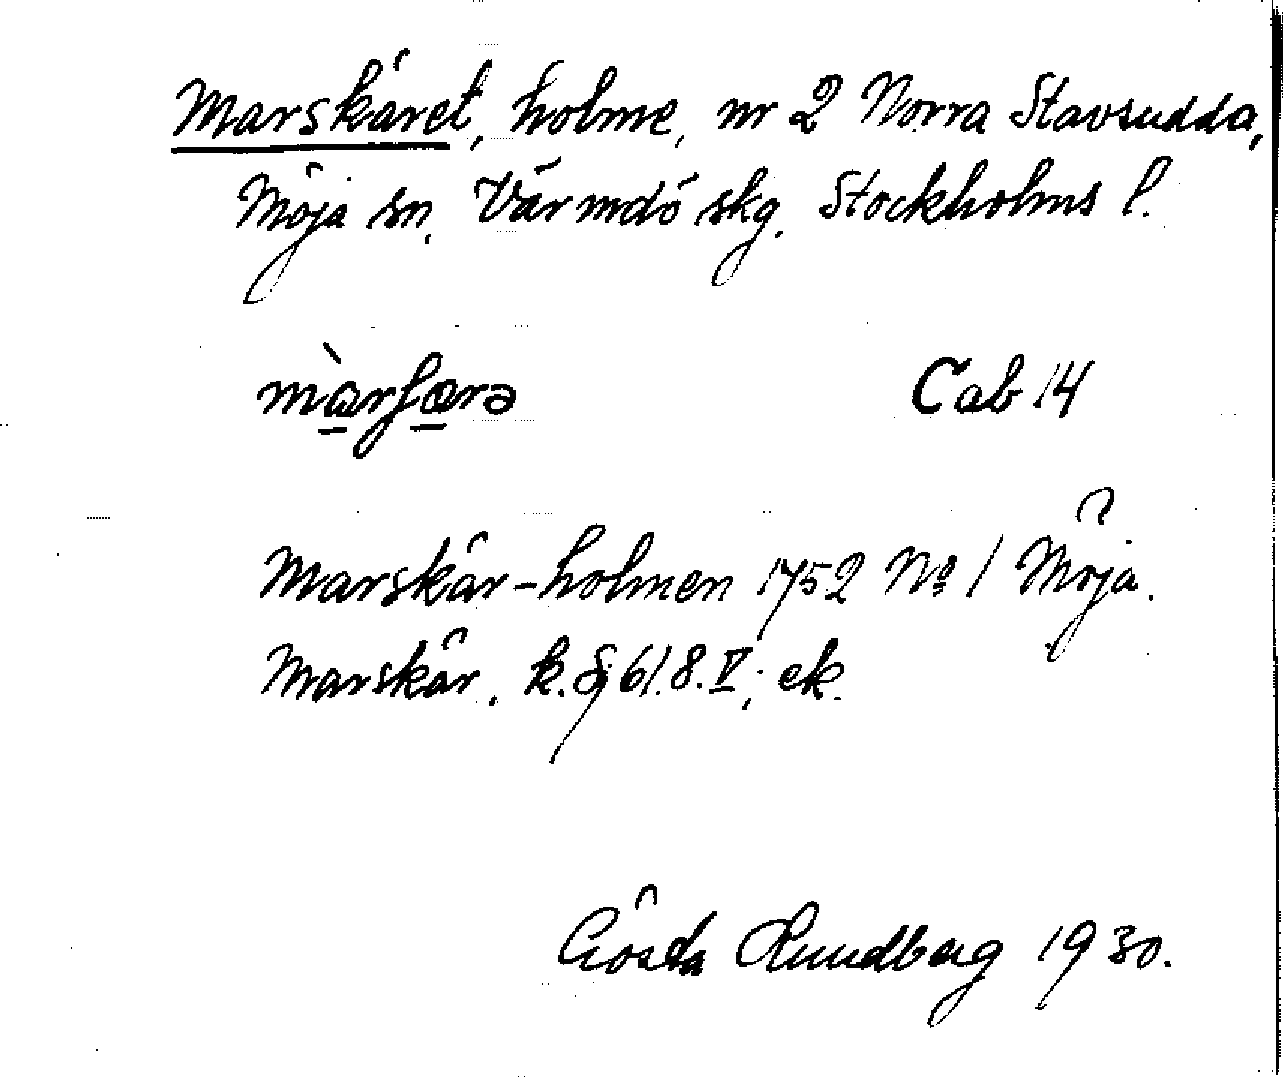 Marskäret, holme, nr 2 Norra Stavsudda,
Möja sn, Värmdö skg. Stockholms l.
màrʃærə Cab 14
Marskär-holmen 1752 No 1 Möja.
Marskär. k. § 61. 8. V; ek.
Gösta Lundberg 1930.